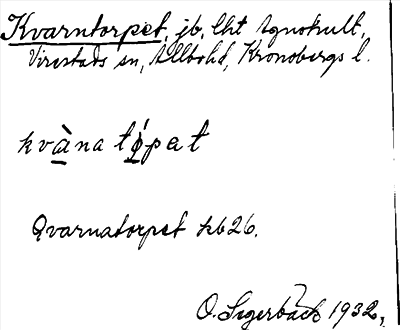 Kvarntorpet, jb, lht Agnokult,
Virestads sn, Allbohd, Kronobergs l.
kvànatópet
Qvarnatorpet hb26.
O. Segerbäck 1932,